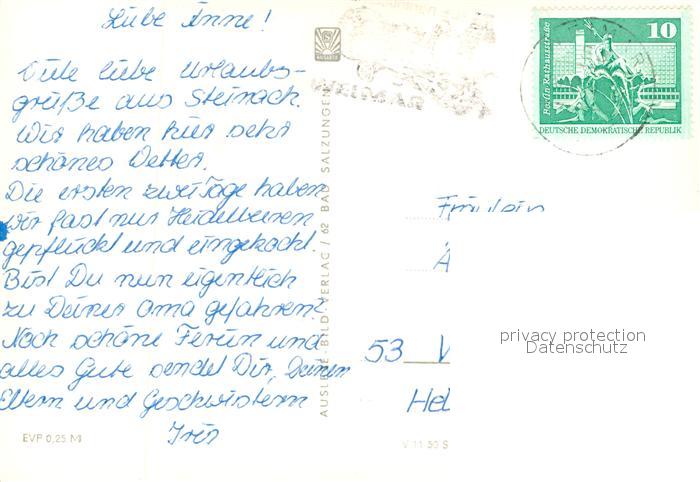 Liebe Änne!
Viele liebe Urlaubs-
grüße aus Steinach.
Wir haben hier sehr
schönes Wetter.
Die ersten zwei Tage haben
wir fast nur Heidelbeeren
gepflückt und eingekocht.
Bist Du nun eigentlich
zu Deiner Oma gefahren?
Noch schöne Ferien und
alles Gute sendet Dir, Deinen
Eltern und Geschwistern
Iris
EVP 0,25 M
AUSLESE-BILD-VERLAG / 62 BAD SALZUNGEN
V 11 50 S
10
Berlin, Rathausstraße
DEUTSCHE DEMOKRATISCHE REPUBLIK
Fräulein
Ä
53 V
Hel
privacy protection
Datenschutz